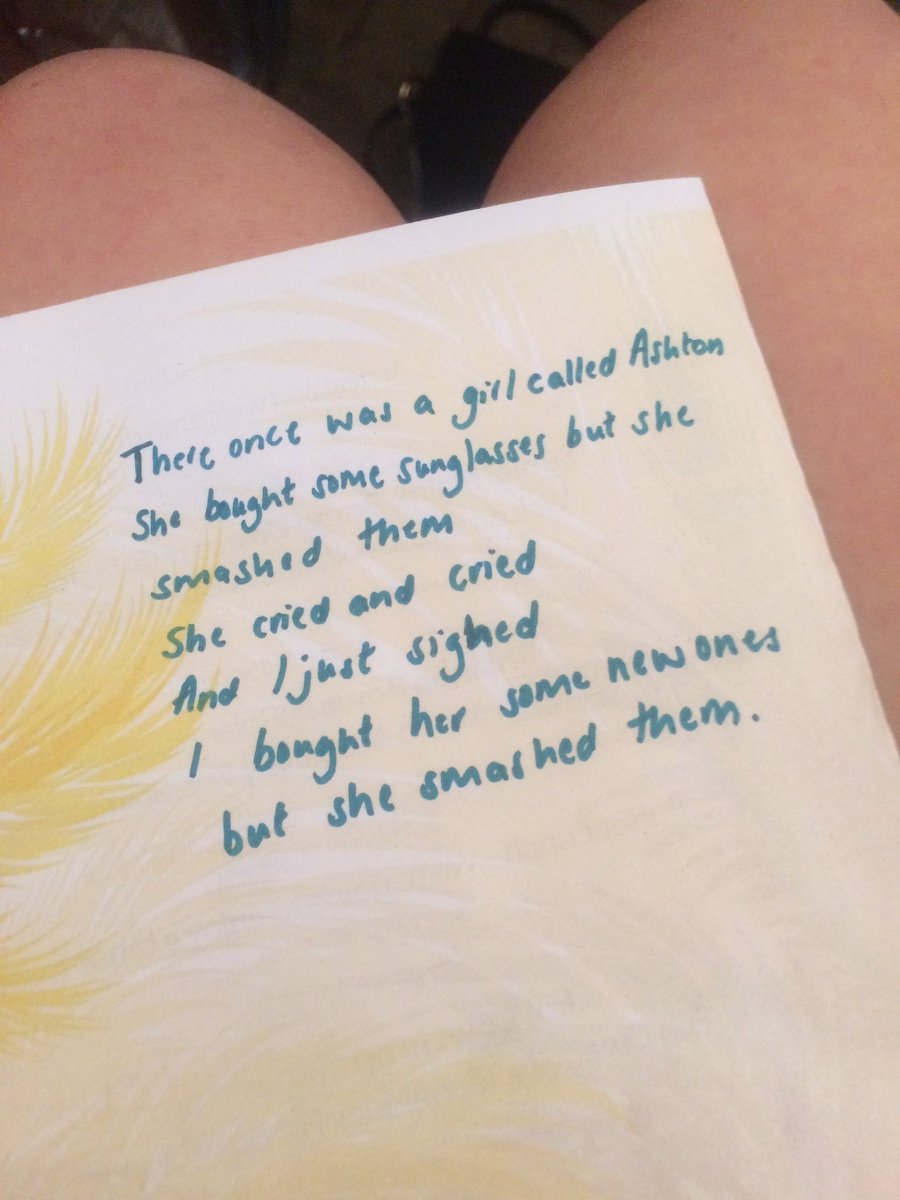 There once was a girl called Ashton
She bought some sunglasses but she
smashed them
She cried and cried
And I just sighed
I bought her some new ones
but she smashed them.